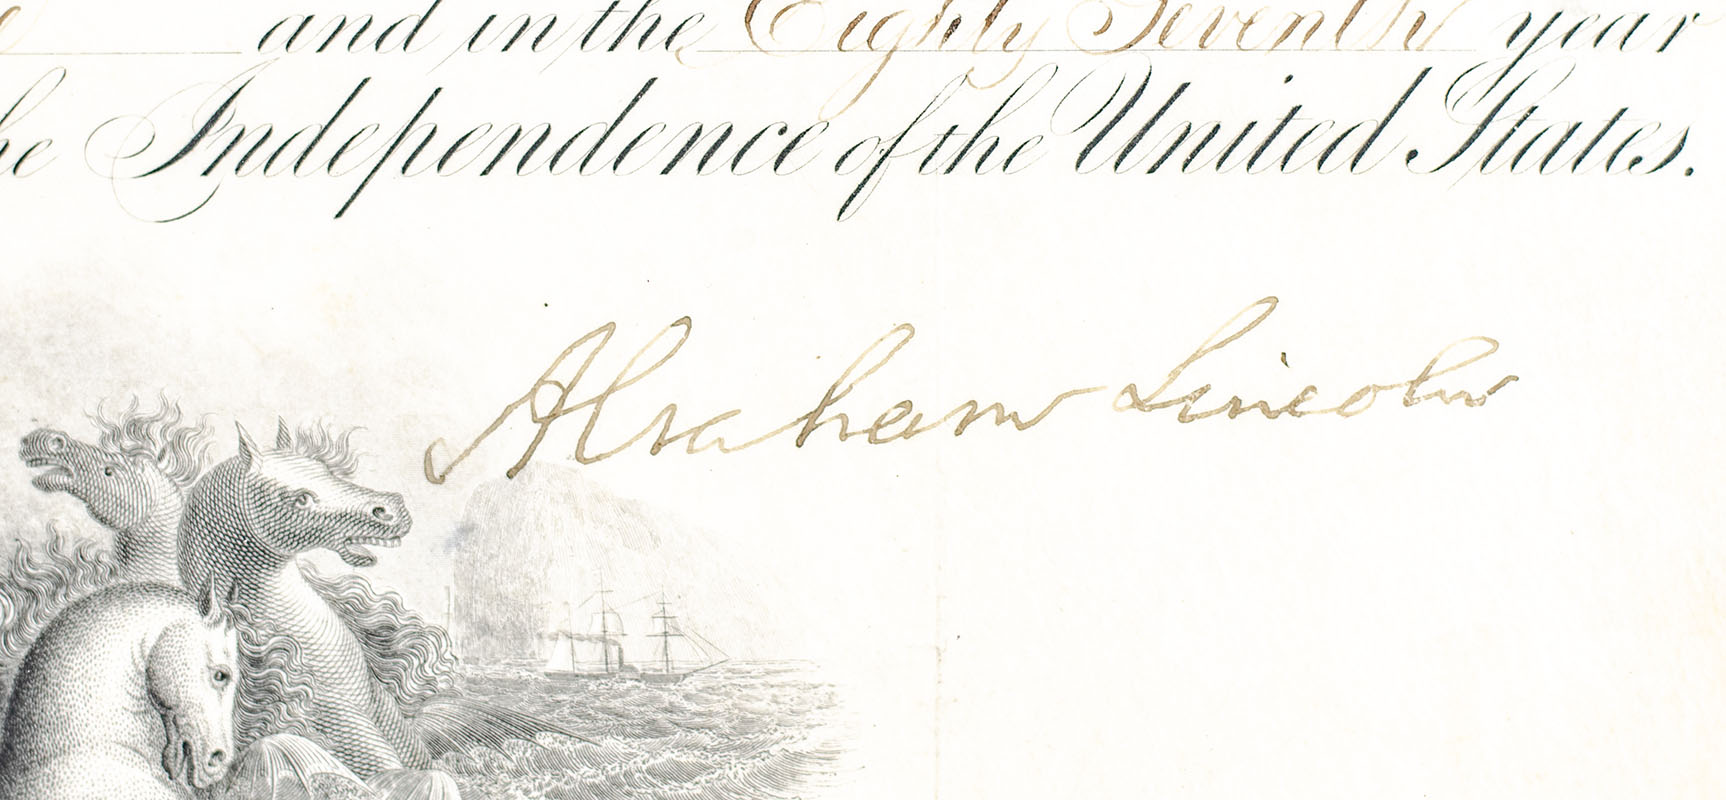 and in the Eighty Seventh year
he Independence of the United States.
Abraham Lincoln